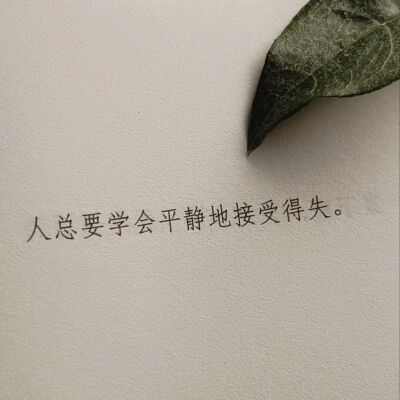 人总要学会平静地接受得失。